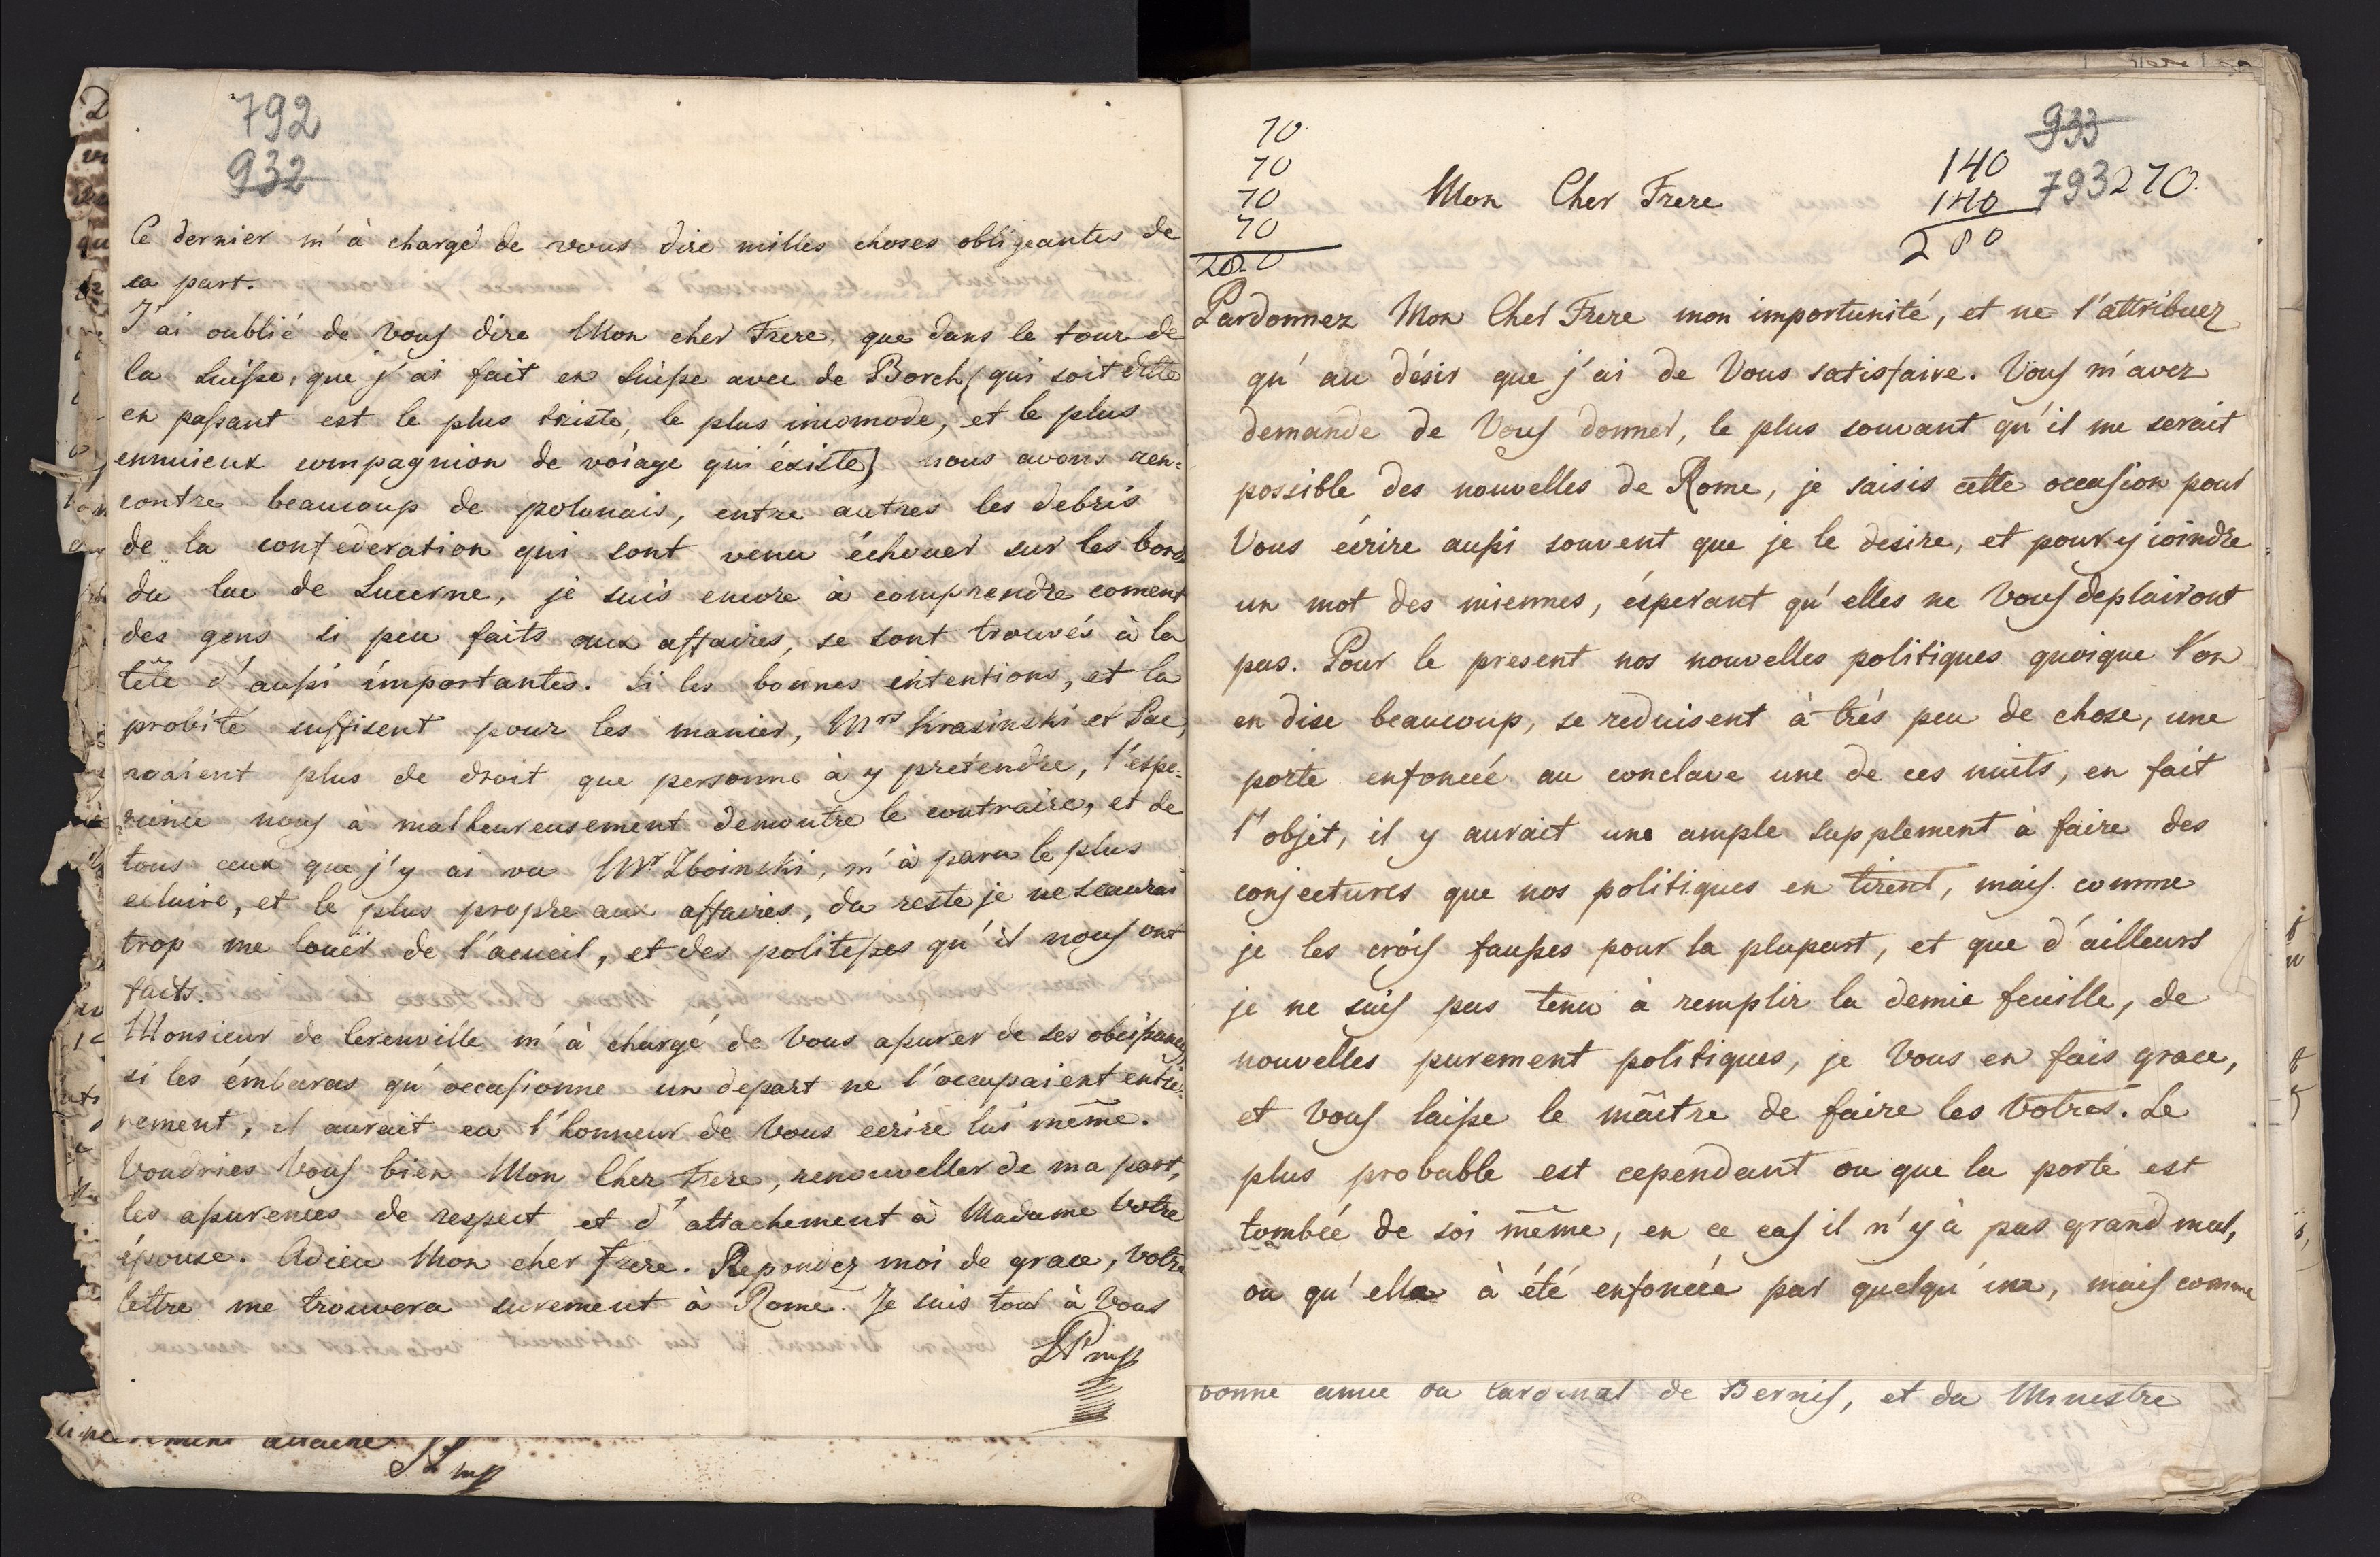 792
932
Ce dernier m'à chargé de vous dire milles choses obligeantes de
sa part.
J'ai oublié de vous dire Mon cher Frere, que dans le tour de
la Suisse, que j'ai fait en Suisse avec de Borch (qui soit dite
en passant est le plus triste, le plus incomode, et le plus
ennuieux compagnion de voiage qui éxiste) nous avons ren=
contre beaucoup de polonais, entre autres les debris
de la confederation qui sont venu échouer sur les bords
du lac de Lucerne, je suis encore à comprendre coment
des gens si peu faits aux affaires, se sont trouvés à la
tête d'aussi importantes. Si les bonnes intentions, et la
probité suffisent pour les manier, Mrs Krasinski et Pac,
avaient plus de droit que personne à y pretendre, l'espe=
rience nous à malheureusement demontre le contraire, et de
tous ceux que j'y ai vu Mr Zboinski, m'à paru le plus
eclairé, et le plus propre aux affaires, du reste je ne scaurai
trop me louer de l'acueil, et des politesses qu'il nous ont
faits.
Monsieur de Cerenville m'à chargé de Vous assurer de ses obeissances,
si les émbaras qu'occasionne un depart ne l'occupaient entie=
rement, il aurait eu l'honneur de Vous ecrire lui même.
Voudries Vous bien Mon Cher Frere, renouveller de ma part,
les assurences de respect et d'attachement à Madame Votre
épouse. Adieu Mon cher Frere. Repondez moi de grace, Votre
lettre me trouvera surement à Rome. Je suis tout à Vous
SP mp
attaché
mp
70
70
70
70
280
Mon Cher Frere
140
140
280
933
793
270.
Pardonnez Mon Cher Frere mon importunité, et ne l'attribuez
qu'au désir que j'ai de Vous satisfaire. Vous m'avez
demande de Vous donner, le plus souvant qu'il me serait
possible des nouvelles de Rome, je saisis cette occasion pour
Vous écrire aussi souvent que je le desire, et pour y joindre
un mot des miennes, ésperant qu'elles ne Vous deplairont
pas. Pour le present nos nouvelles politiques quoique l'on
en dise beaucoup, se reduisent à trés peu de chose, une
porte enfoncéé au conclave une de ces nuits, en fait
l'objet, il y aurait une ample supplement à faire des
conjectures que nos politiques en tirent, mais comme
je les crois fausses pour la plupart, et que d'ailleurs
je ne suis pas tenu à remplir la demie feuille, de
nouvelles purement politiques, je Vous en fais grace,
et Vous laisse le mâitre de faire les Votres. Le
plus probable est cependant ou que la porte est
tombéé de soi même, en ce cas il n'y à pas grand mal,
ou qu'elle à été enfoncéé par quelqu'un, mais comme
bonne amie du Cardinal de Bernis, et du Ministre